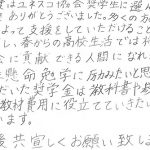 度はユネスコ協会奨学生に選ん
ありがとうございました。多くの方
よって支援をしていただけること
し、春からの高校生活では
会に貢献できる人間になれ
生懸命勉学に励みたいと思
だいた奨学金は教科書や
教材費用に役立てていきたい
います。
後共宜しくお願い致し